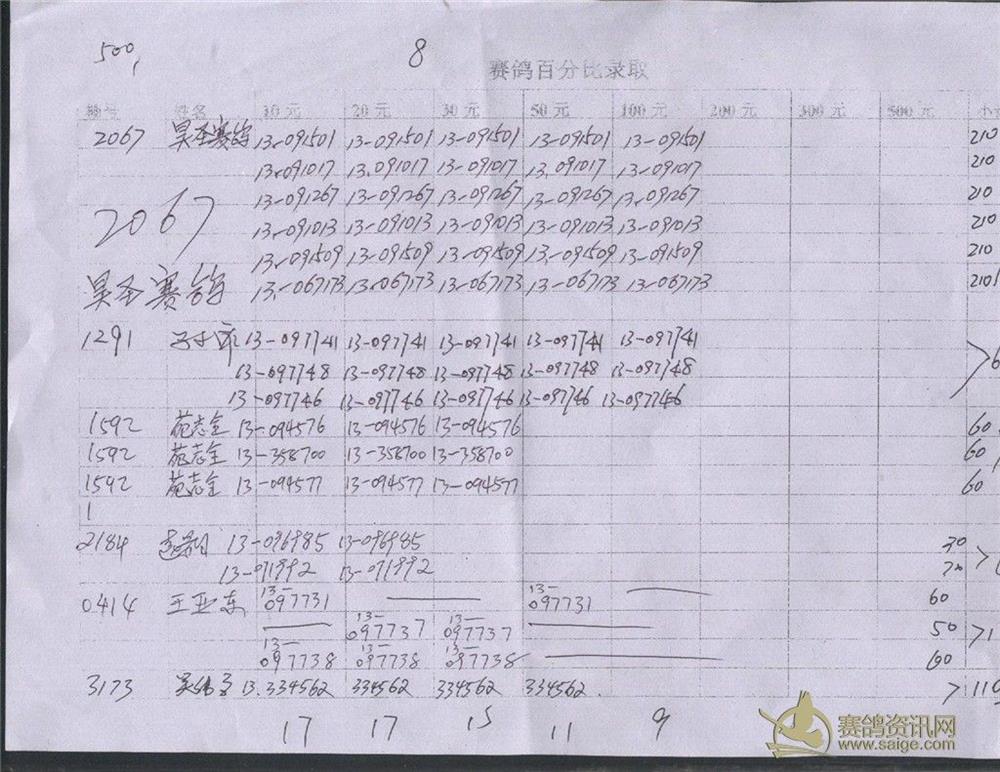 500, 8
赛鸽百分比录取
棚号 姓名 10元 20元 30元 50元 100元 200元 300元 500元 小
2067 昊圣赛鸽 13-091501 13-091501 13-091501 13-091501 13-091501 210
13-091017 13.091017 13-091017 13.091017 13-091017 210
13-091267 13-091267 13-091267 13-091267 13-091267 210
2067 13-091013 13-091013 13-091013 13-091013 13-091013 210
13-091509 13-091509 13-091509 13-091509 13-091509 210
昊圣赛鸽 13-067173 13-067173 13-067173 13-067173 13-067173 210
1291 13-097741 13-097741 13-097741 13-097741 13-097741
13-097748 13-097748 13-097748 13-097748 13-097748 6
13-097746 13-097746 13-097746 13-097746 13-097746
1592 苑志全 13-094576 13-094576 13-094576 60
1592 苑志全 13-358700 13-358700 13-358700 60
1592 苑志全 13-094577 13-094577 13-094577 60
1
2184 13-096985 13-096985 30
13-091992 13-091992
0414 王亚东 13-097731 13-097731 60
13-097737 13-097737 50
13-097738 13-097738 13-097738 60
3173 13.334562 334562 334562 334562. 110
17 17 15 11 9
赛鸽资讯网
www.saige.com